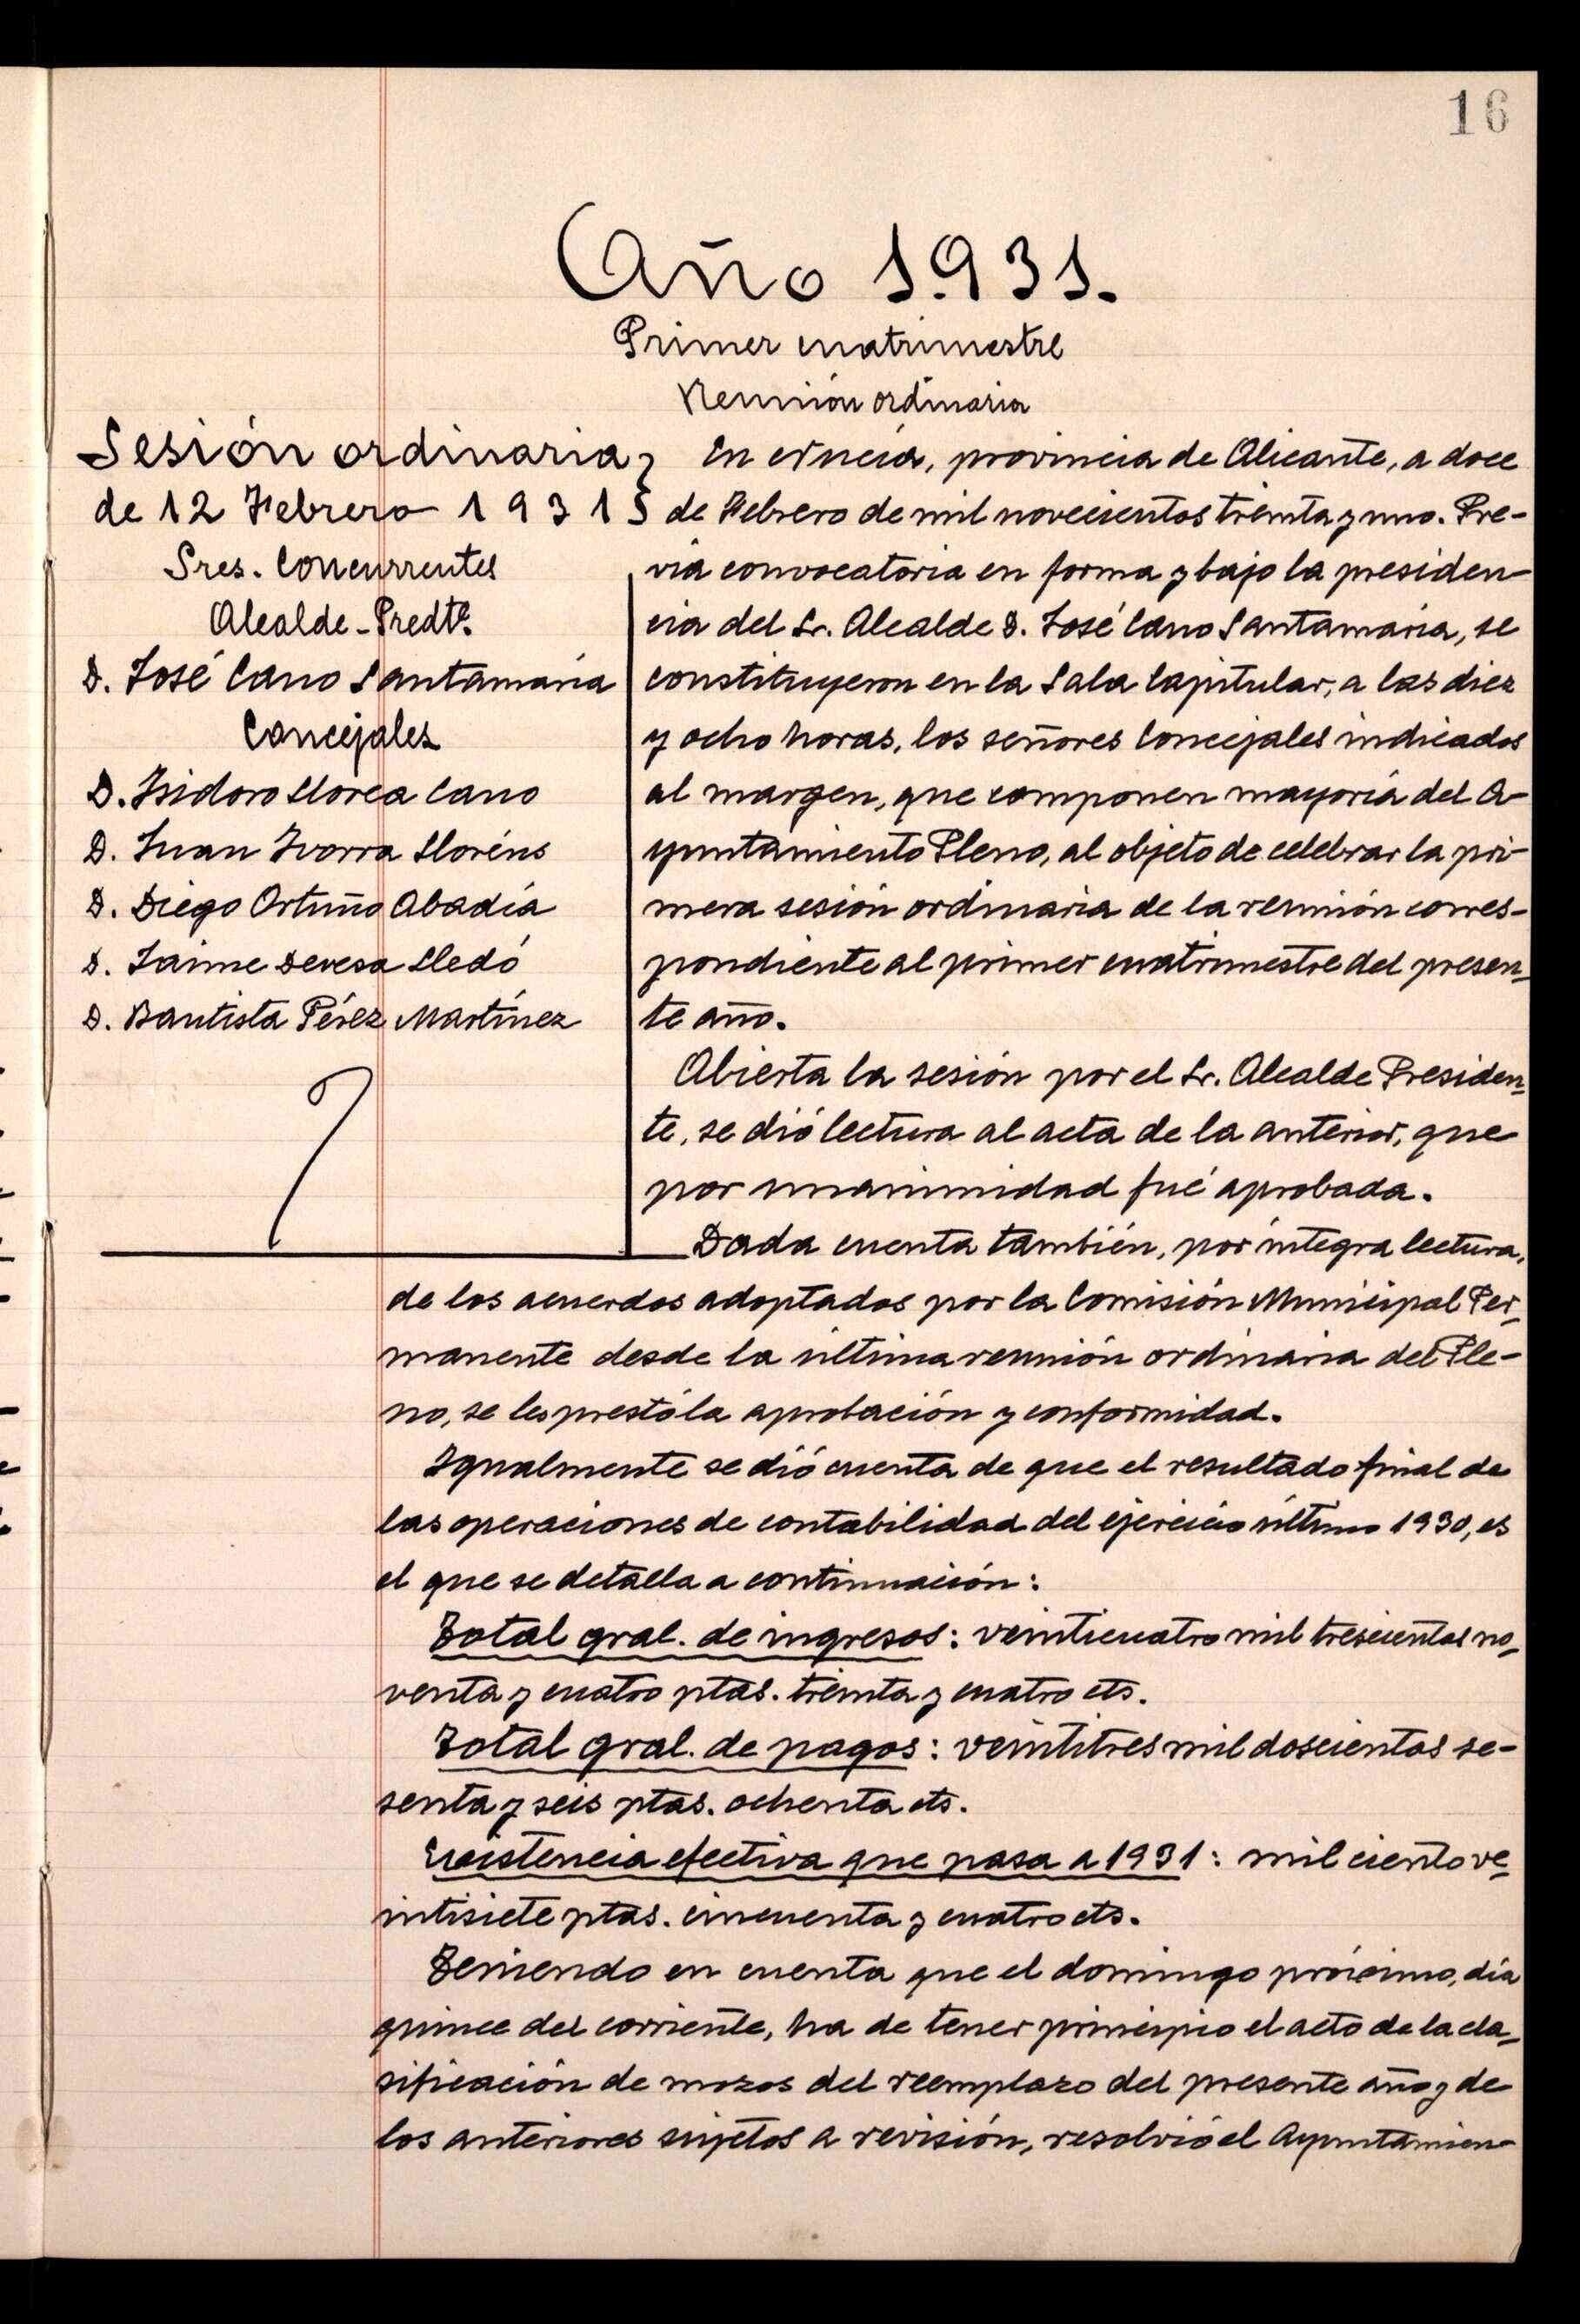 16
Año 1.931.
Primer cuatrimestre
Reunión ordinaria
Sesión ordinaria
de 12 Febrero 1931
Sres. Concurrentes
Alcalde-Predte.
D. José Cano Santamaría
Concejales
D. Isidoro Llorca Cano
D. Juan Ivorra Lloréns
D. Diego Ortuño Abadía
D. Jaime Devesa Lledó
D. Bautista Pérez Martínez
En Nucía, provincia de Alicante, a doce
de Febrero de mil novecientos treinta y uno. Pre-
via convocatoria en forma y bajo la presiden-
cia del Sr. Alcalde D. José Cano Santamaría, se
constituyeron en la Sala Capitular, a las diez
y ocho horas, los señores Concejales indicados
al margen, que componen mayoría del A-
yuntamiento Pleno, al objeto de celebrar la pri-
mera sesión ordinaria de la reunión corres-
pondiente al primer cuatrimestre del presen-
te año.
Abierta la sesión por el Sr. Alcalde Presiden-
te, se dió lectura al acta de la anterior, que
por unanimidad fué aprobada.
Dada cuenta también, por íntegra lectura,
de los acuerdos adoptados por la Comisión Municipal Per-
manente desde la última reunión ordinaria del Ple-
no, se les prestó la aprobación y conformidad.
Igualmente se dió cuenta de que el resultado final de
las operaciones de contabilidad del ejercicio último 1930, es
el que se detalla a continuación:
Total gral. de ingresos: veinticuatro mil trescientas no-
venta y cuatro ptas. treinta y cuatro cts.
Total gral. de pagos: veintitres mil doscientas se-
senta y seis ptas. ochenta cts.
Existencia efectiva que pasa a 1931: mil ciento ve-
intisiete ptas. cincuenta y cuatro cts.
Teniendo en cuenta que el domingo próximo, día
quince del corriente, ha de tener principio el acto de la cla-
sificación de mozos del reemplazo del presente año y de
los anteriores sujetos a revisión, resolvió el Ayuntamien-